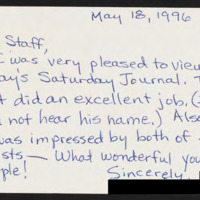 May 18, 1996
Staff,
I was very pleased to view
ay's Saturday Journal. T
t did an excellent job. (I
not hear his name.) Also
was impressed by both of
sts — What wonderful you
ple! Sincerely,